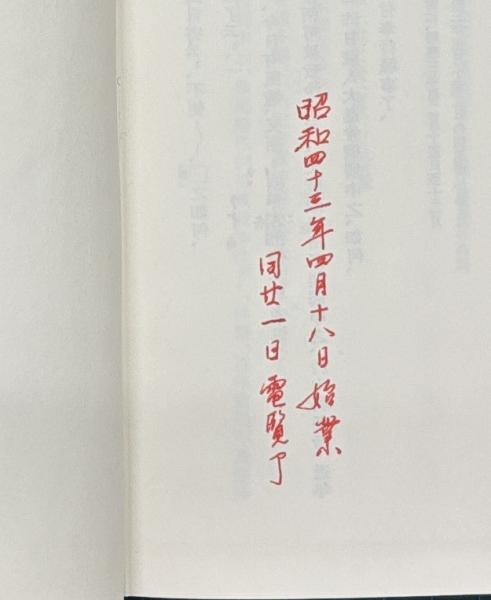 昭和四十三年四月十八日始業
同廿一日電覽了